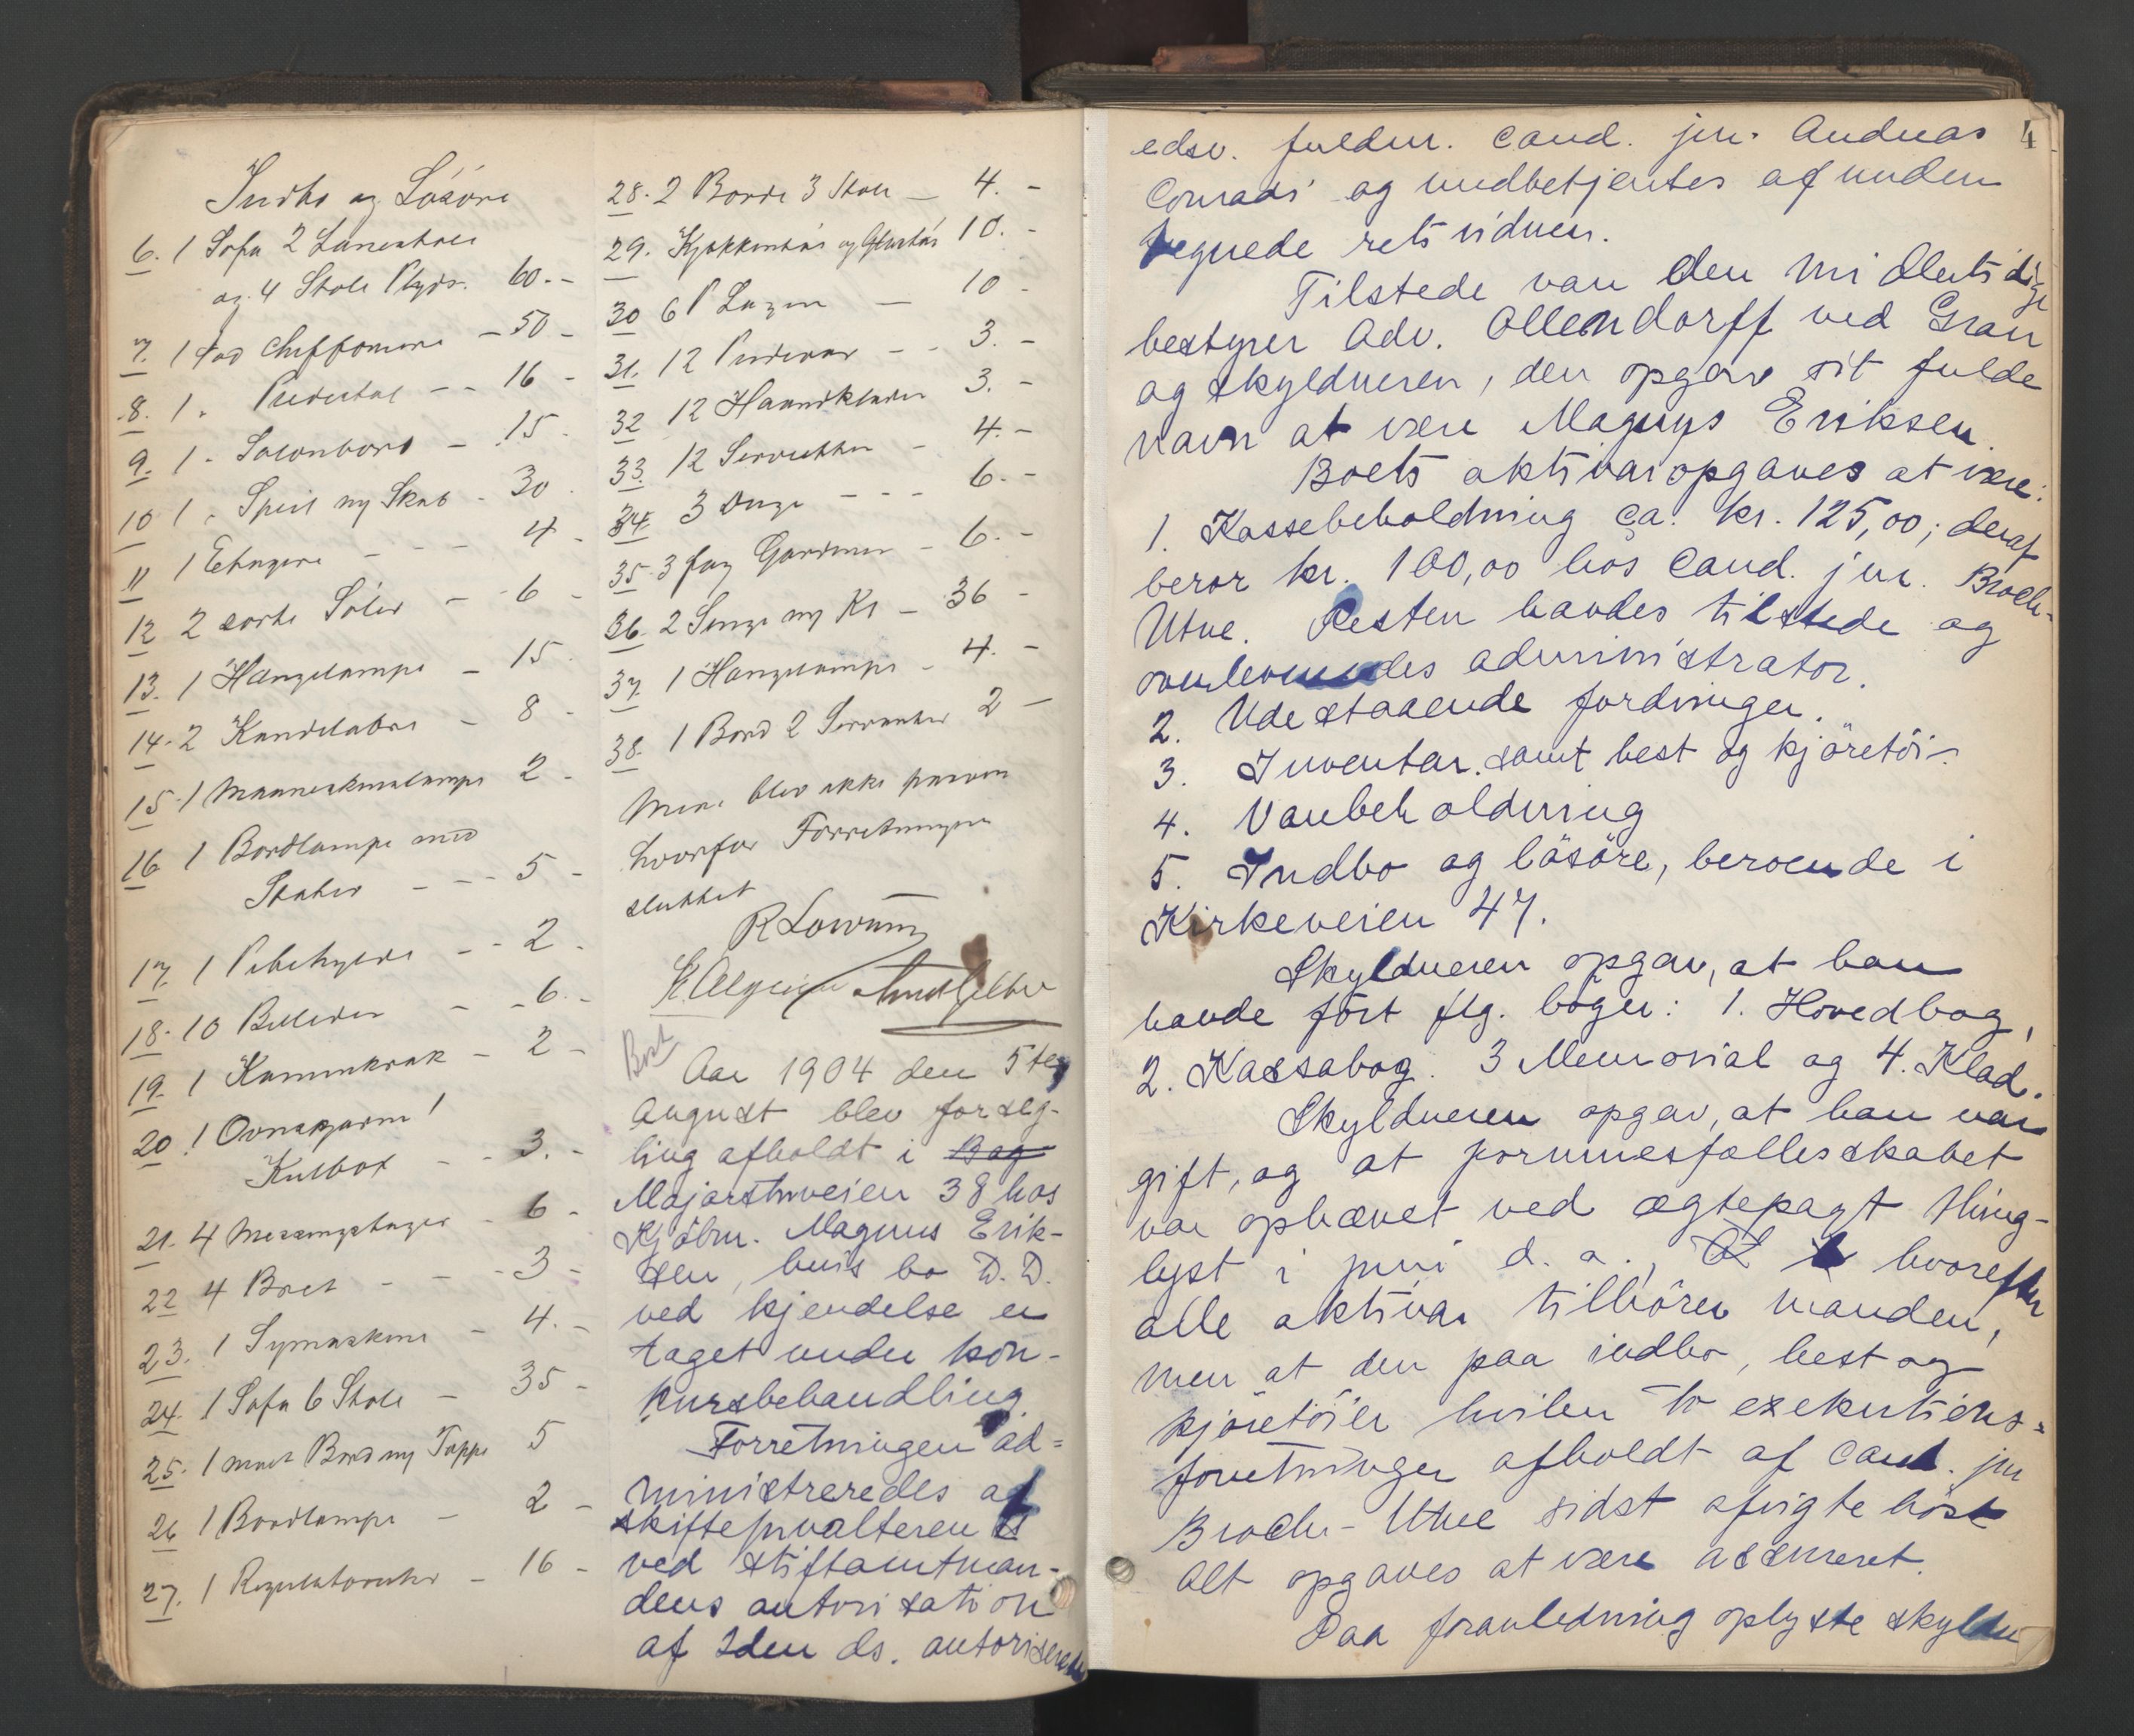 Indbo og Lösöre
6. 1 Sofa 2 Lænestoler
og 4 Stole Plyds. 60.-
7. 1 fod Chiffoniere - 50 -
8. 1 " Piedestal - - 16 -
9. 1 " Salonbord - 15 -
10 1 " Speil og Skab - 30
11 1 Etagere - - - 4 -
12 2 sorte Söiler - 6 -
13. 1 Hængelampe - 15
14. 2 Kandelabre - 8 -
15. 1 Maaneskinslampe 2 -
16 1 Bordlampe med
Stativ - - - 5 -
17. 1 Pibehylde - - 2 -
18. 10 Billeder - - 6. -
19. 1 Kaminkrak - 2 -
20 1 Ovnskjærm 1
Kulbox - - 3. -
21. 4 Messingstager - 6 -
22 4 Bret - - - 3 -
23. 1 Symaskine - 4. -
24. 1 Sofa 6 Stole - 35 -
25. 1 Bord og Tæppe 5
26 1 Bordlampe - 2 -
27. 1 Regulatoruhr - 16 -
28. 2 Borde 3 Stole - 4. -
29. Kjøkkentøi og Glastøi 10. -
30 6 P Lagen - 10 -
31. 12 Pudevar - - 3. -
32 12 Haandklæder 3. -
33. 12 Servietter - 4. -
34. 3 Duge - - - 6. -
35. 3 fag Gardiner - 6. -
36. 2 Senge og Kl - 36 -
37. 1 Hængelampe - 4. -
38. 1 Bord 2 Servanter 2 -
Mere blev ikke
hvorfor Forretningen
sluttet
Aar 1904 den 5te
august blev forseg-
ling afholdt i Bog
Majorstuveien 38 hos
Kjöbm. Magnus Erik-
sen, hvis bo D. D.
ved kjendelse er
taget under kon-
kursbehandling.
Forretningen ad-
ministreredes af
skifteforvalteren
ved stiftamtman-
dens autorisation
af 2den ds. autoriserede
4
edsv. fuldm. cand. jur. Andreas
Conradi og medbetjentes af under
tegnede retsvidner.
Tilstede var den midlertidige
bestyrer Adv. Ollendorff ved Gran
og skyldneren, der opgav sit fulde
navn at være Magnus Eriksen.
Boets aktiva opgaves at være:
1. Kassebeholdning ca. kr. 125,00; deraf
beror kr. 100,00 hos cand. jur. Broch-
Utne. Resten havdes tilstede og
overleveredes administrator.
2. Udestaaende fordringer.
3. Inventar samt hest og kjöretöi.
4. Varebeholdning
5. Indbo og lösöre, beroende i
Kirkeveien 47.
Skyldneren opgav, at han
havde fört flg. böger: 1. Hovedbog,
2. Kassabog. 3 Memorial og 4. Klad.
Skyldneren opgav, at han var
gift, og at formuesfællesskabet
var ophævet ved ægtepagt thing-
lyst i juni d. a., hvorefter
alle aktiva tilhörer manden,
men at der paa indbo, hest og
kjöretöier hviler to exekutions-
forretninger afholdt af cand. jur
Broch-Utne sidst afvigte höst
Alt opgaves at være assureret.
Paa foranledning oplyste skyldn